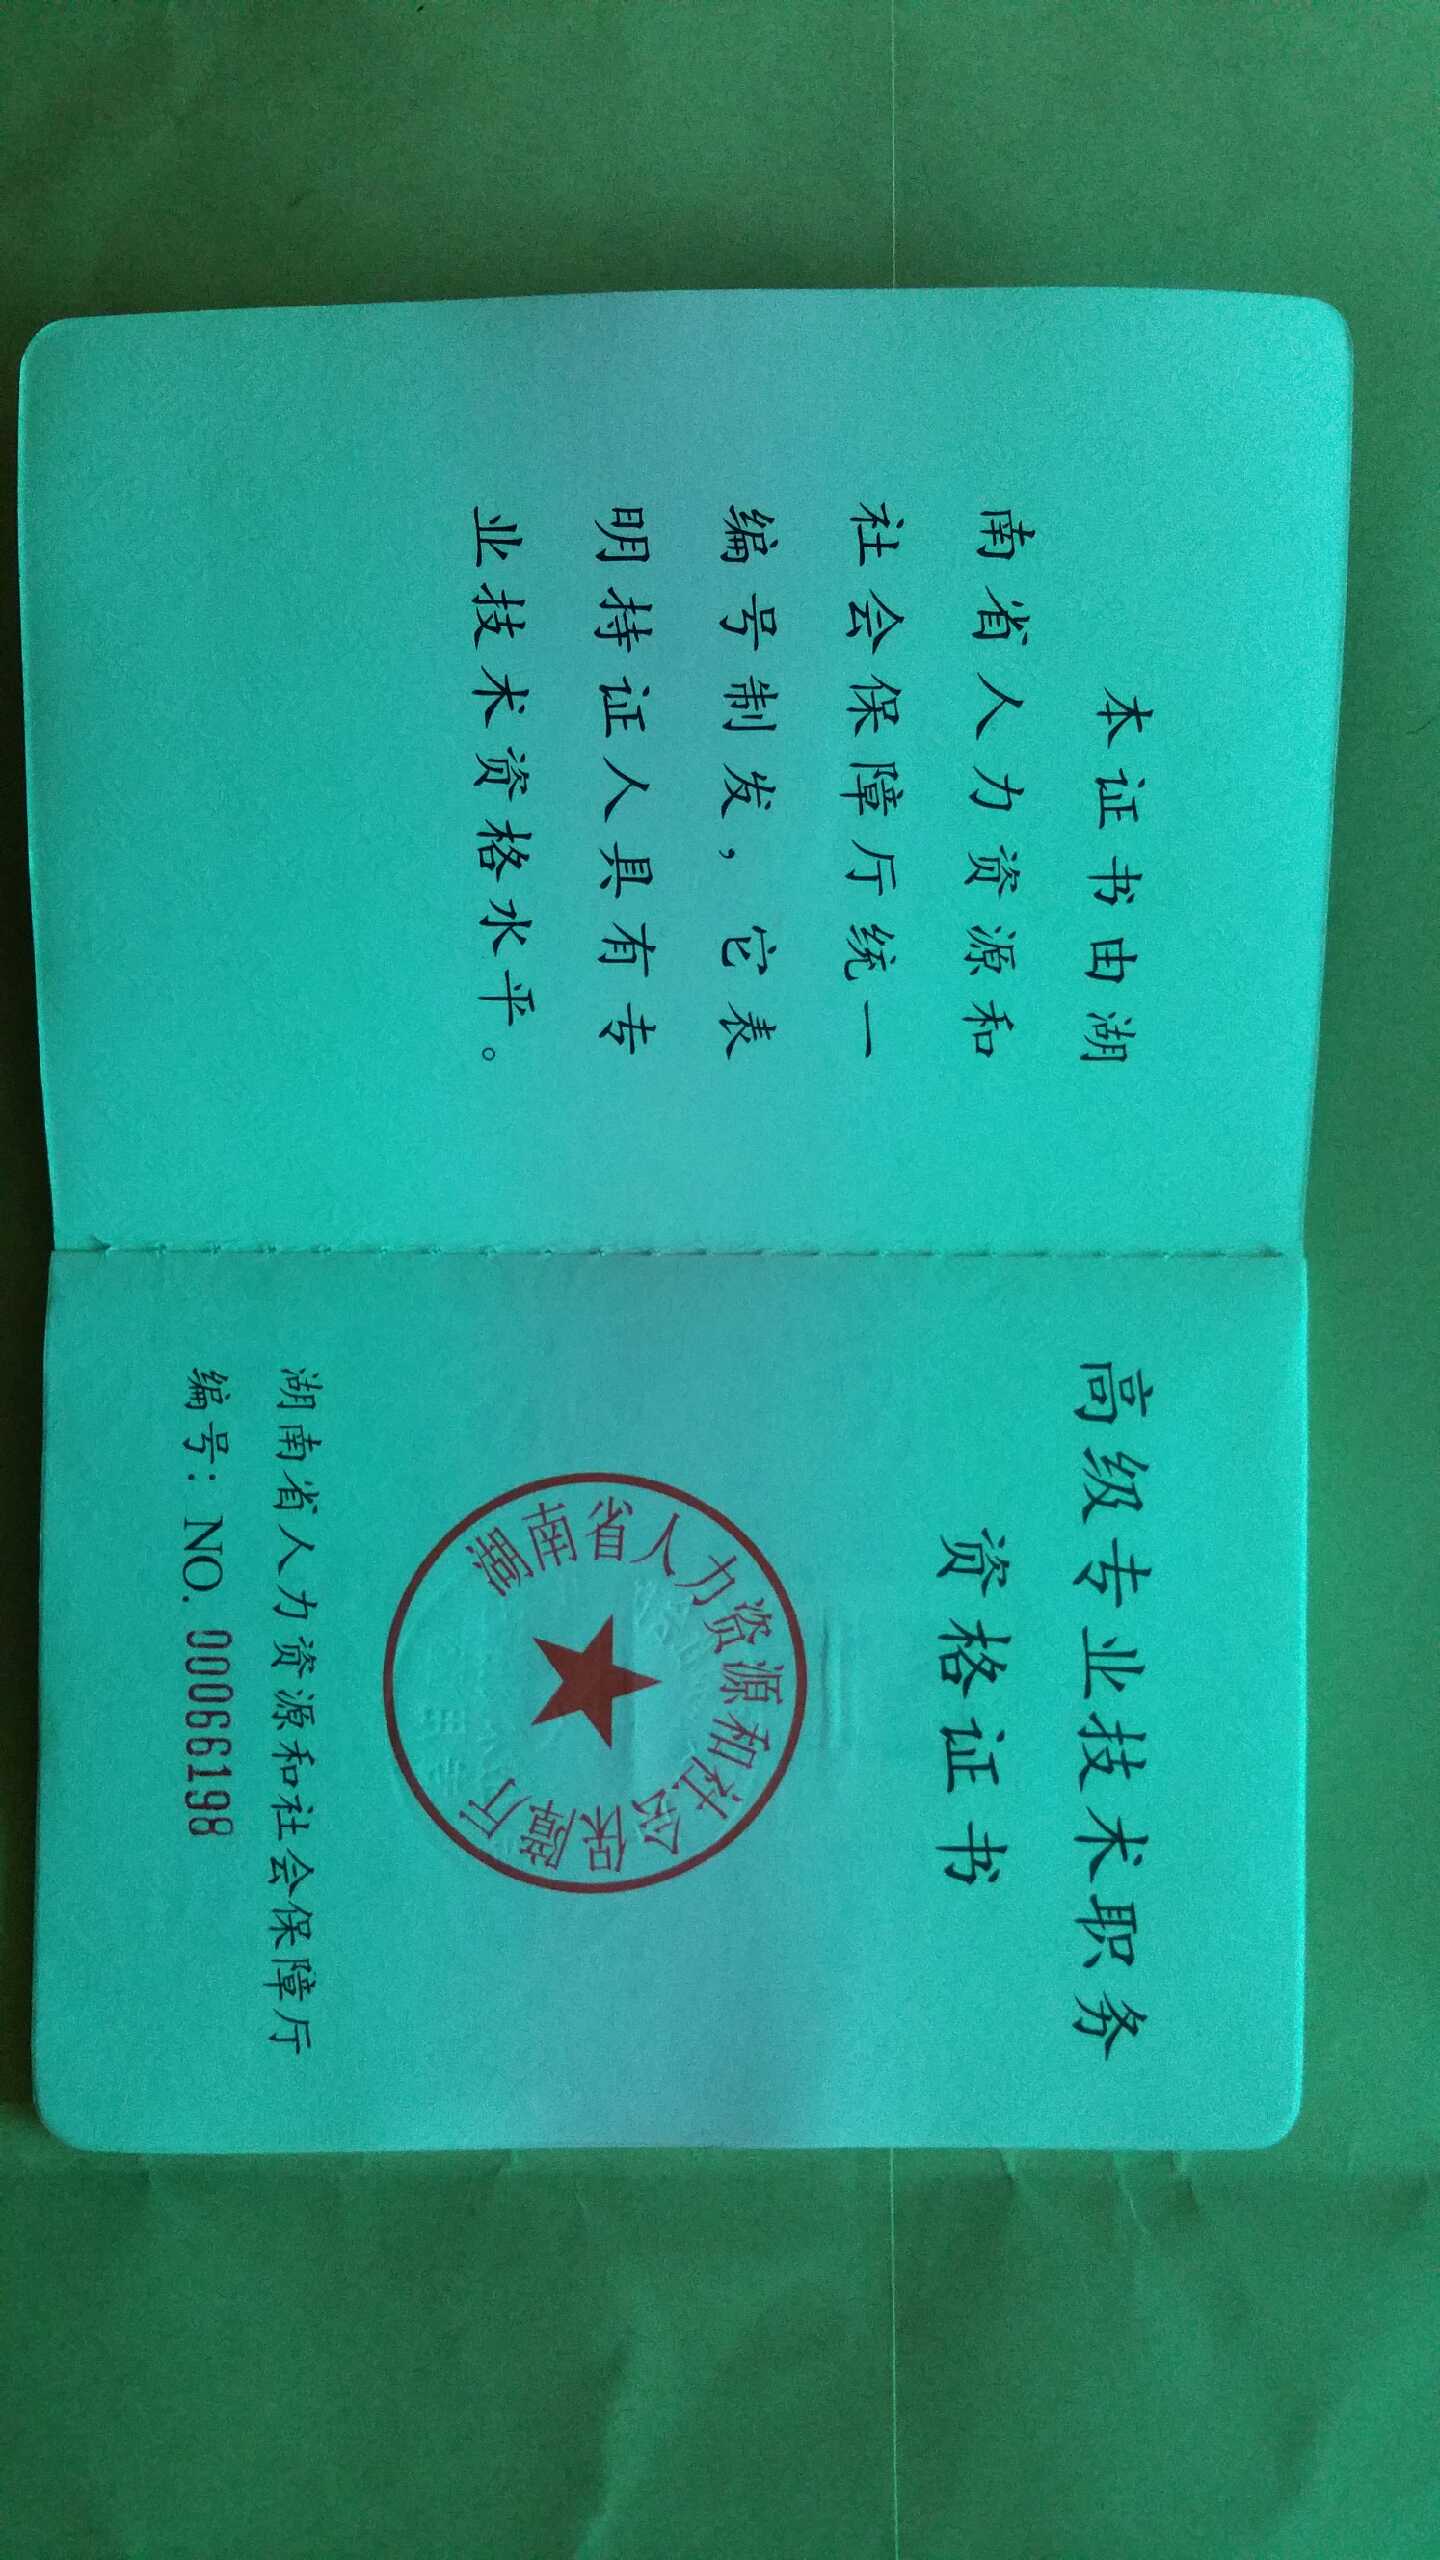 本证书由湖
南省人力资源和
社会保障厅统一
编号制发，它表
明持证人具有专
业技术资格水平。
高级专业技术职务
资格证书
湖南省人力资源和社会保障厅
湖南省人力资源和社会保障厅
编号：NO. 00066198